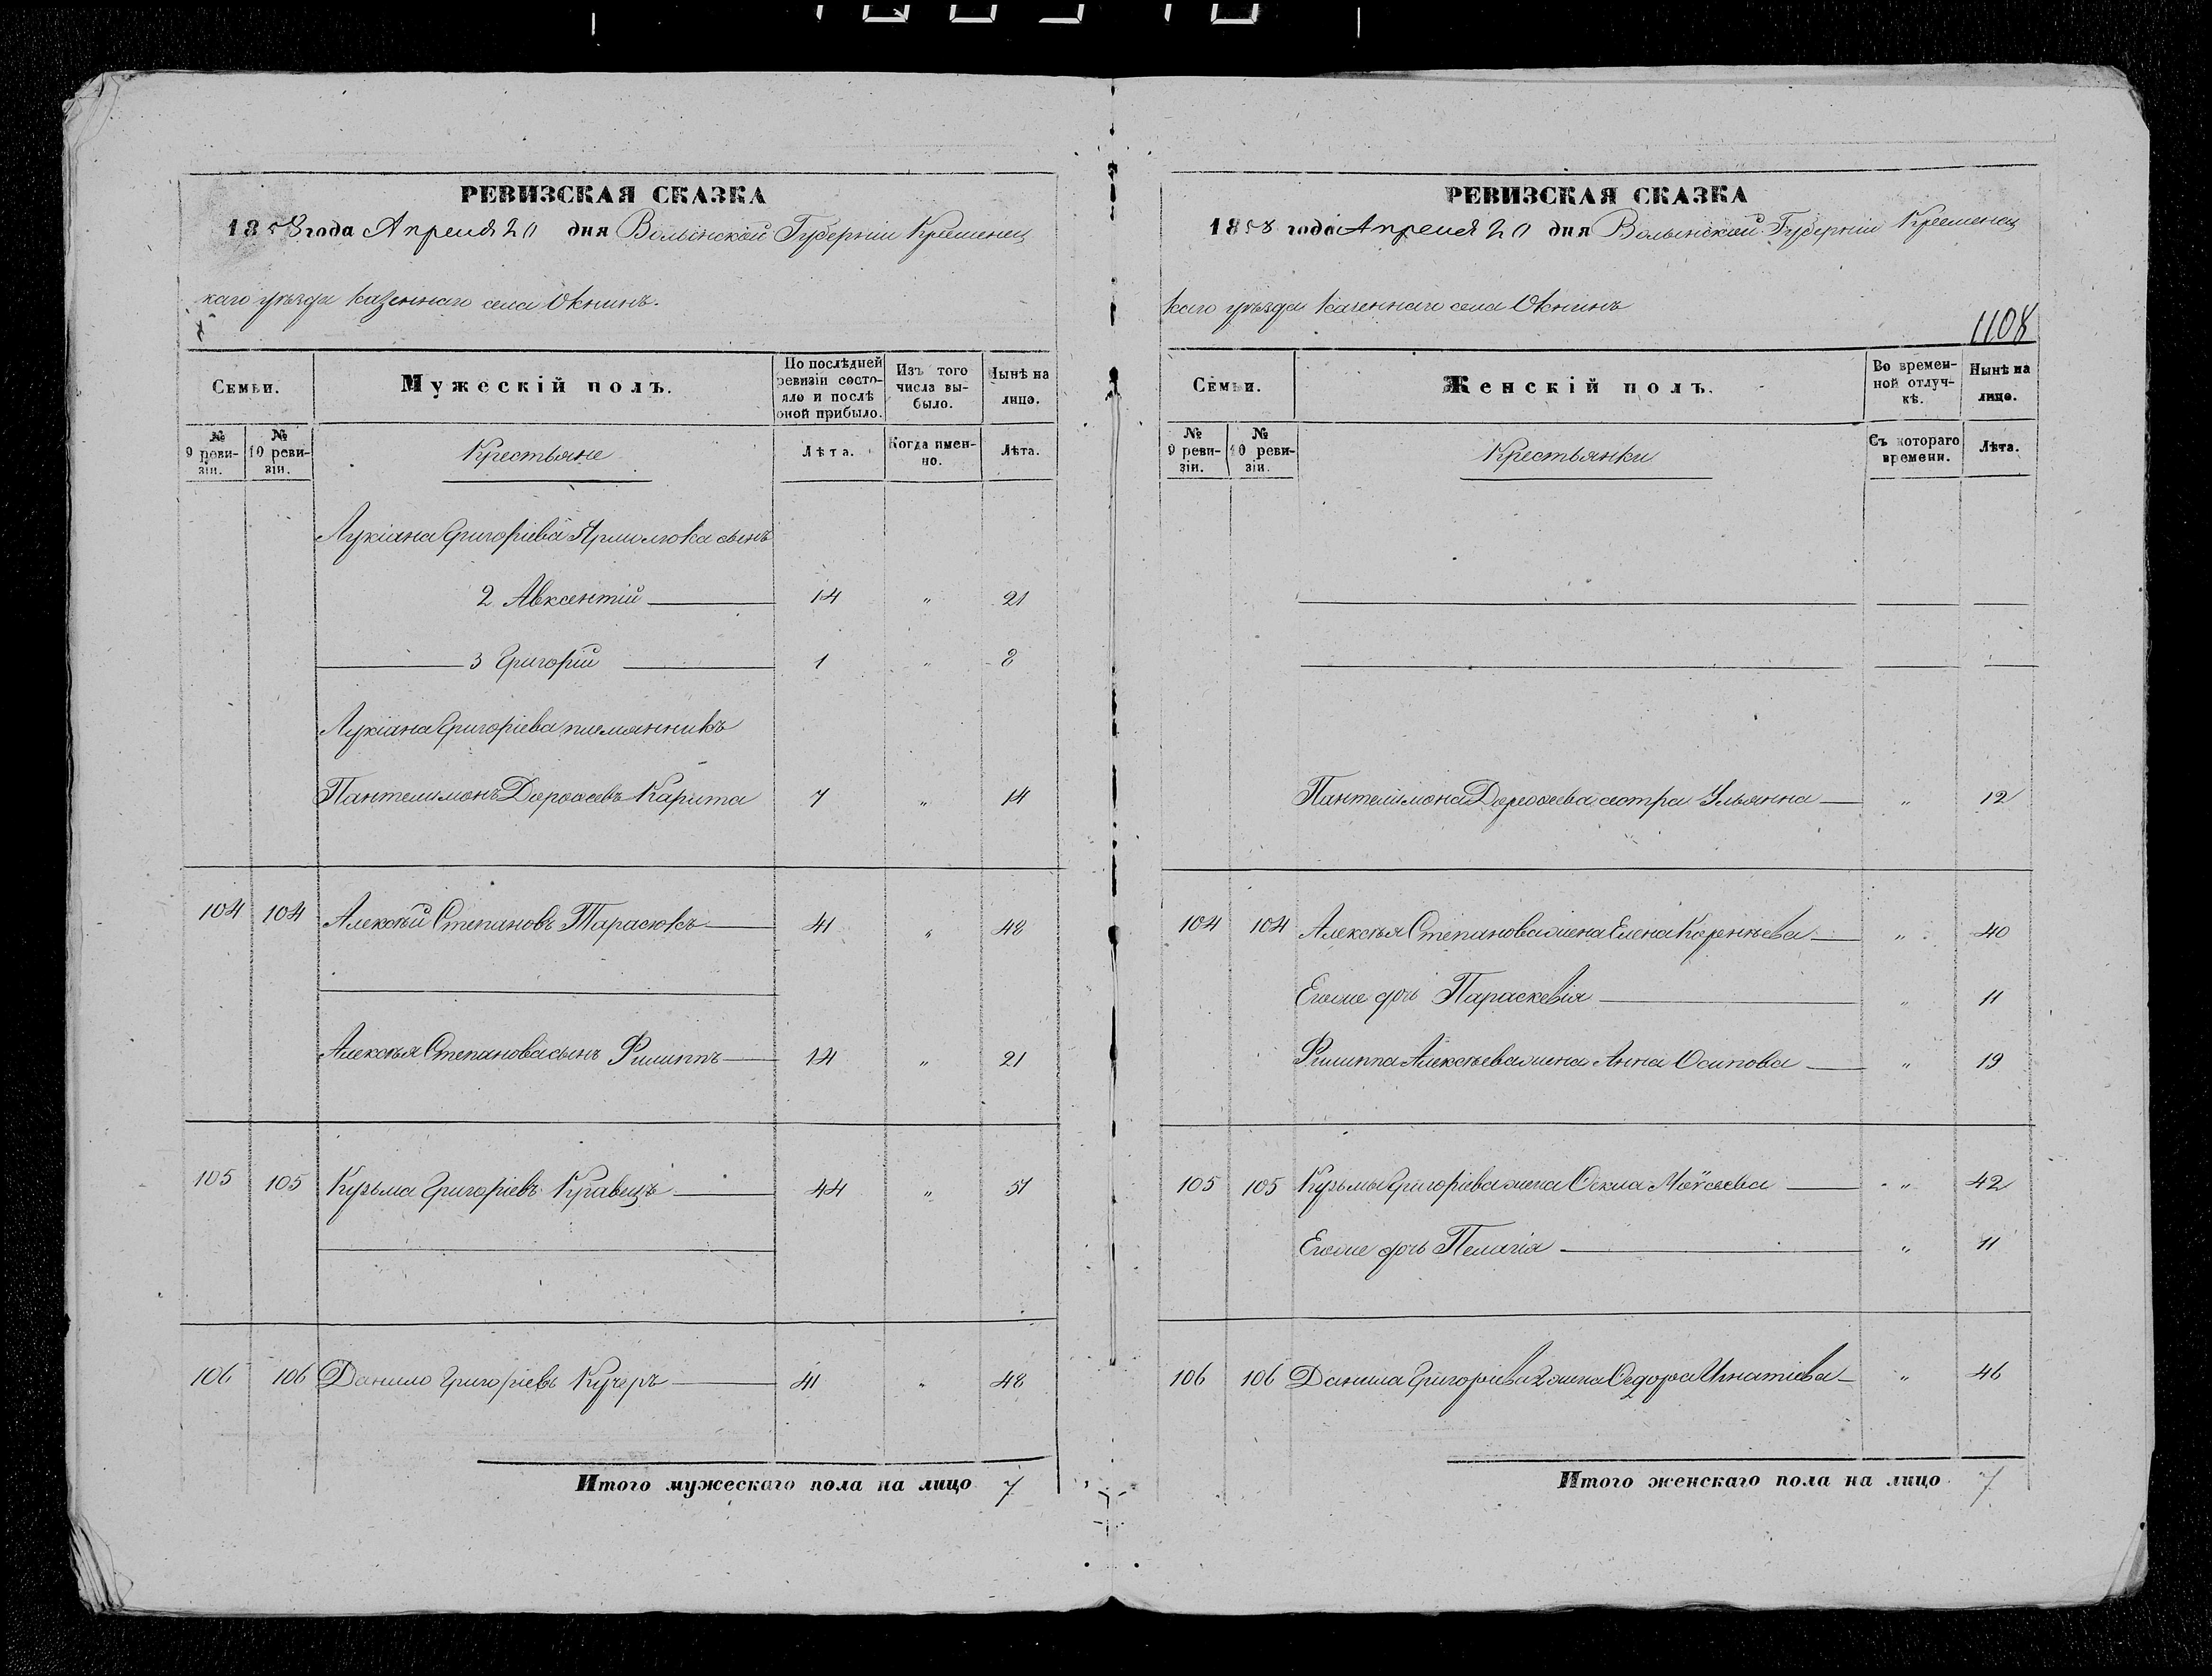 РЕВИЗСКАЯ СКАЗКА
1858 года Апреля 20 дня Волынской Губерніи Кременец
каго уѣзда казеннаго села Окнинъ.
Семьи.
Мужескій полъ.
По послѣдней ревизіи состояло и послѣ оной прибыло.
Изъ того числа выбыло.
Нынѣ на лицо.
№ 9 ревизіи.
№ 10 ревизіи.
Крестьяне
Лѣта.
Когда именно.
Лѣта.
Лукіана Григоріева Ярмолюка сынъ
2 Авксентій 14 " 21
3 Григорій 1 " 8
Лукіана Григоріева племянникъ
Пантелимонъ Дороѳеевъ Карита 7 " 14
104 104 Алексѣй Степановъ Тарасюкъ 41 " 48
Алексѣя Степанова сынъ Филиппъ 14 " 21
105 105 Кузьма Григоріевъ Кравецъ 44 " 51
106 106 Данило Григоріевъ Кучеръ 41 " 48
Итого мужескаго пола на лицо 7
РЕВИЗСКАЯ СКАЗКА
1858 года Апреля 20 дня Волынской Губерніи Кременец
каго уѣзда казеннаго села Окнинъ
1108
Семьи.
Женскій полъ.
Во временной отлучкѣ.
Нынѣ на лицо.
№ 9 ревизіи.
№ 10 ревизіи.
Крестьянки
Съ котораго времени.
Лѣта.
Пантелимона Дороѳеева сестра Ульянна " 12
104 104 Алексѣя Степанова жена Елена Корнѣева " 40
Егоже дочь Параскевія " 11
Филиппа Алексѣева жена Анна Осипова " 19
105 105 Кузьмы Григоріева жена Ѳекла Моѵсеева " 42
Егоже дочь Пелагія " 11
106 106 Данила Григоріева 2 жена Ѳедора Игнатіева " 46
Итого женскаго пола на лицо 7